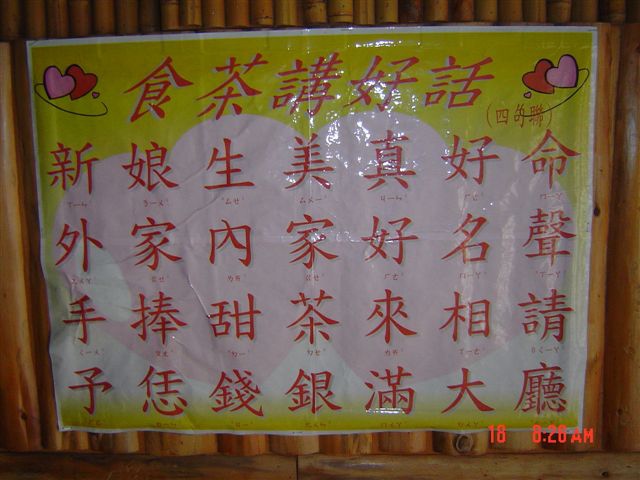 食茶講好話
(四的聯)
新娘生美真好命
外家內家好名聲
手捧甜茶來相請
予恁錢銀滿大廳
18 8:28 AM